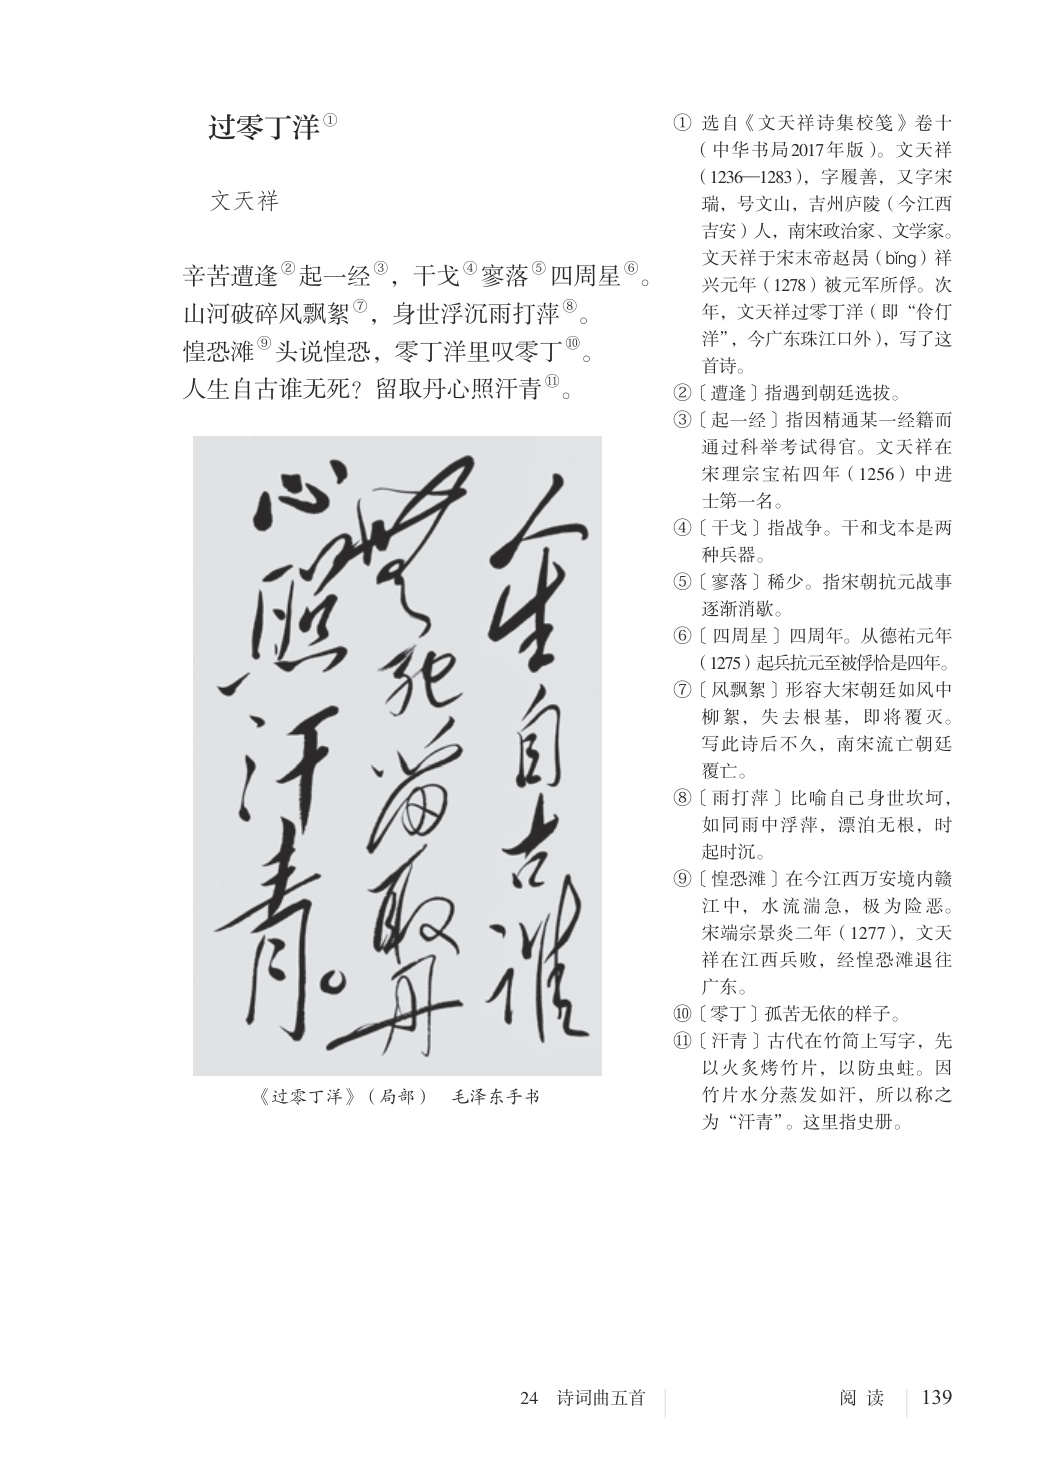 过零丁洋①
文天祥
辛苦遭逢②起一经③，干戈④寥落⑤四周星⑥。
山河破碎风飘絮⑦，身世浮沉雨打萍⑧。
惶恐滩⑨头说惶恐，零丁洋里叹零丁⑩。
人生自古谁无死？留取丹心照汗青⑪。
人生自古谁
无死留取丹
心照汗青。
《过零丁洋》（局部）　毛泽东手书
① 选自《文天祥诗集校笺》卷十
（中华书局2017年版）。文天祥
（1236—1283），字履善，又字宋
瑞，号文山，吉州庐陵（今江西
吉安）人，南宋政治家、文学家。
文天祥于宋末帝赵昺（bǐng）祥
兴元年（1278）被元军所俘。次
年，文天祥过零丁洋（即“伶仃
洋”，今广东珠江口外），写了这
首诗。
②〔遭逢〕指遇到朝廷选拔。
③〔起一经〕指因精通某一经籍而
通过科举考试得官。文天祥在
宋理宗宝祐四年（1256）中进
士第一名。
④〔干戈〕指战争。干和戈本是两
种兵器。
⑤〔寥落〕稀少。指宋朝抗元战事
逐渐消歇。
⑥〔四周星〕四周年。从德祐元年
（1275）起兵抗元至被俘恰是四年。
⑦〔风飘絮〕形容大宋朝廷如风中
柳絮，失去根基，即将覆灭。
写此诗后不久，南宋流亡朝廷
覆亡。
⑧〔雨打萍〕比喻自己身世坎坷，
如同雨中浮萍，漂泊无根，时
起时沉。
⑨〔惶恐滩〕在今江西万安境内赣
江中，水流湍急，极为险恶。
宋端宗景炎二年（1277），文天
祥在江西兵败，经惶恐滩退往
广东。
⑩〔零丁〕孤苦无依的样子。
⑪〔汗青〕古代在竹简上写字，先
以火炙烤竹片，以防虫蛀。因
竹片水分蒸发如汗，所以称之
为“汗青”。这里指史册。
24　诗词曲五首
阅读
139